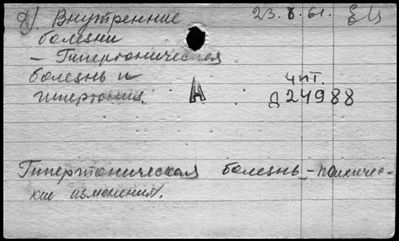 Внутренние 23.8.61.
болезни
– Гипертоническая
болезнь и
гипертония. А чит.
Д24988
Гипертоническая болезнь – психичес-
кие изменения.